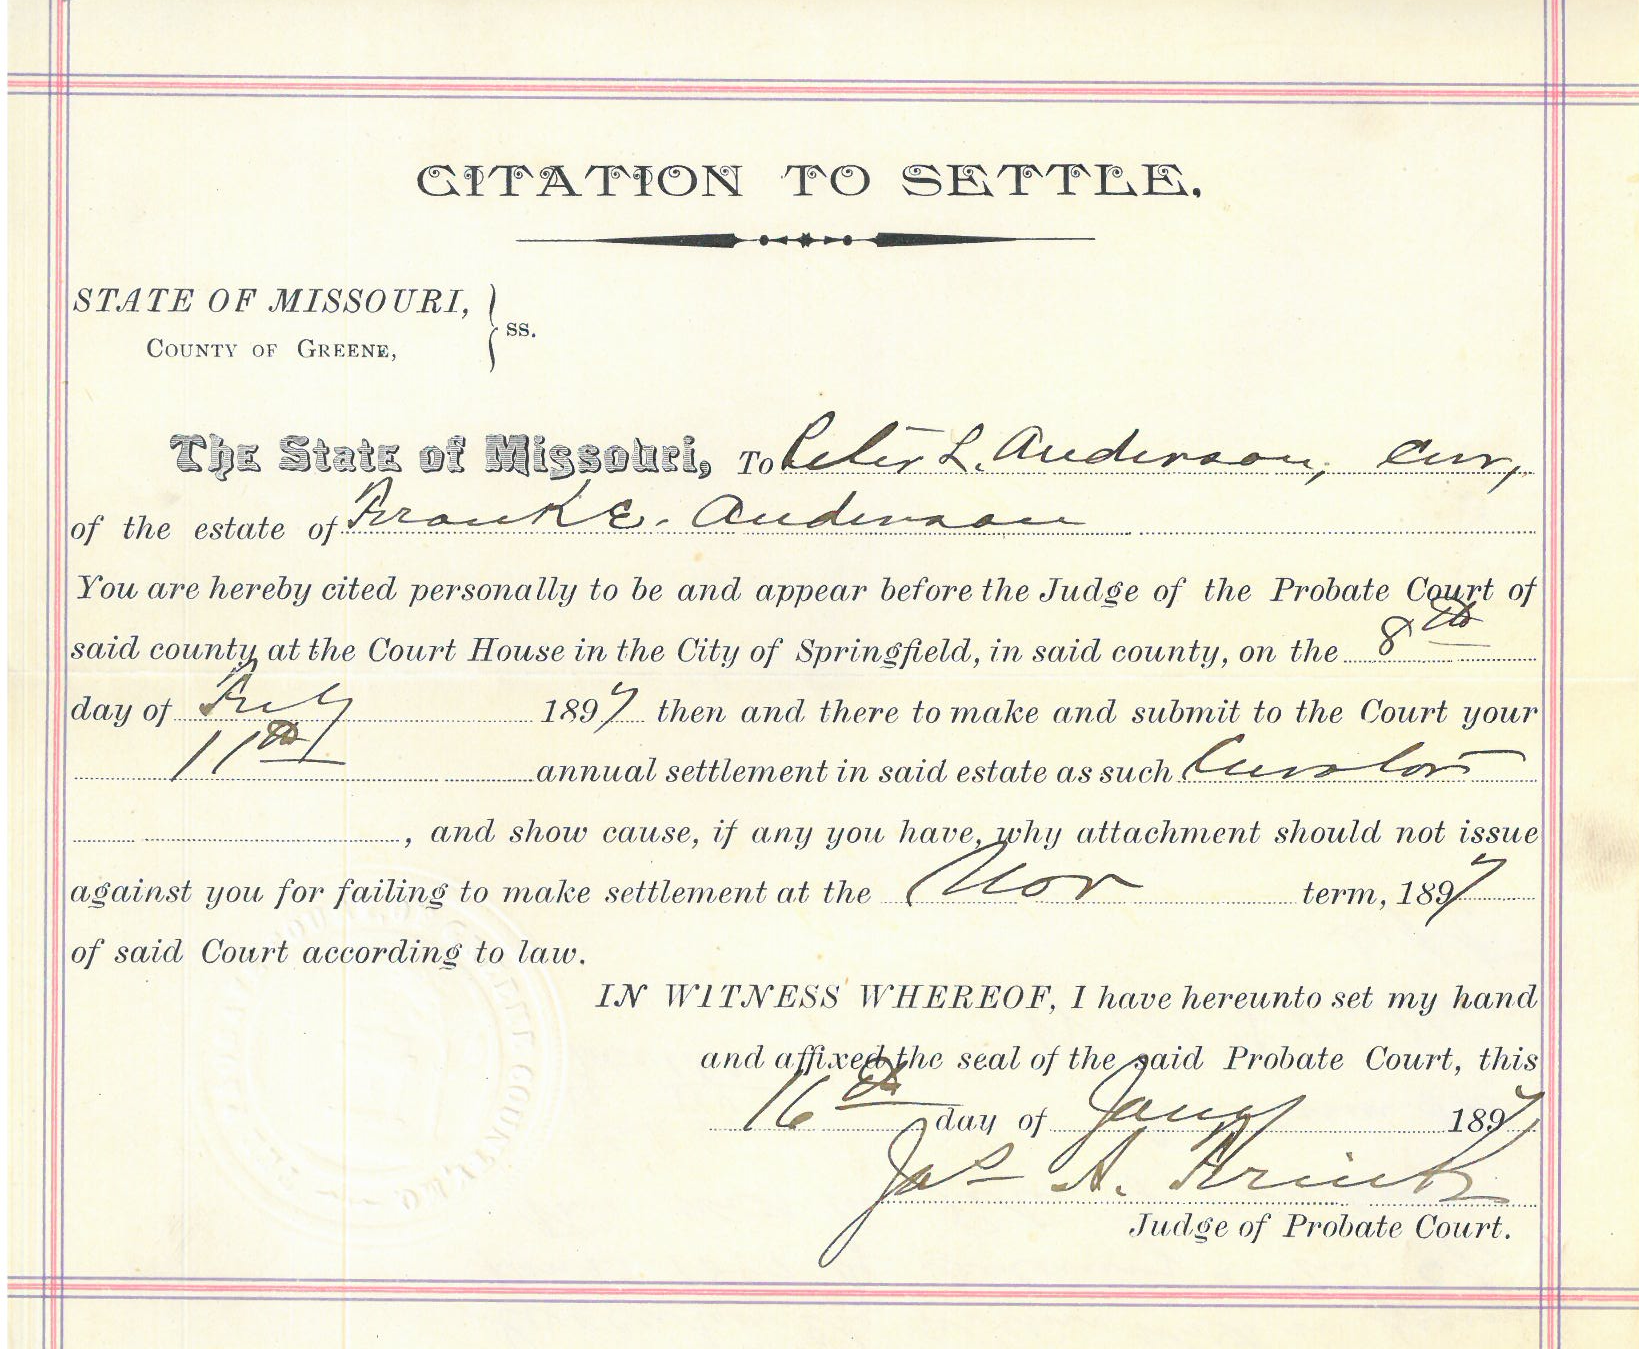 CITATION TO SETTLE.
STATE OF MISSOURI,
COUNTY OF GREENE,
} ss.
The State of Missouri, To Peter L. Anderson, Cur,
of the estate of Frank E. Anderson
You are hereby cited personally to be and appear before the Judge of the Probate Court of
said county at the Court House in the City of Springfield, in said county, on the 8th
day of Feby 1897 then and there to make and submit to the Court your
11th annual settlement in said estate as such Curator
, and show cause, if any you have, why attachment should not issue
against you for failing to make settlement at the Nov term, 1897
of said Court according to law.
IN WITNESS WHEREOF, I have hereunto set my hand
and affixed the seal of the said Probate Court, this
16th day of Jany 1897
Jas A.
Judge of Probate Court.